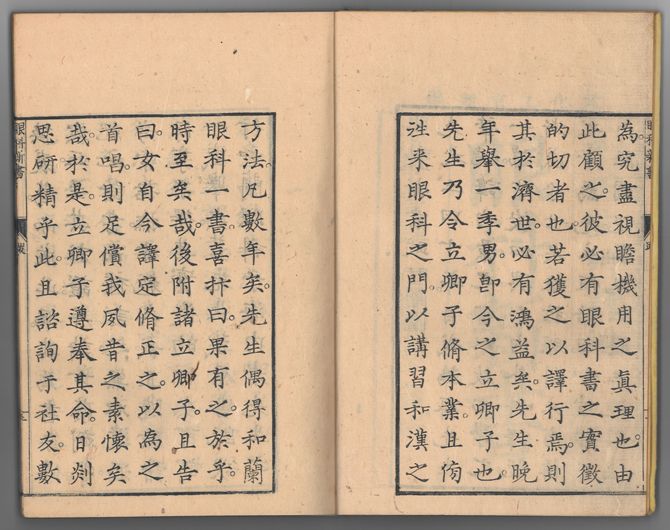 為。究盡視瞻機用之眞理也。由
此顧之。彼必有眼科書之實徵
的切者也。若獲之以譯行焉。則
其於濟世。必有鴻益矣。先生晚
年舉一季男。卽今之立卿子也。
先生乃令立卿子脩本業。且
往來眼科之門。以講習和漢之
方法。凡數年矣。先生偶得和蘭
眼科一書。喜抃曰。果有之。於乎。
時至矣哉。後附諸立卿子。且告
曰。女自今譯定脩正之。以為之
首唱。則足償我夙昔之素懷矣
哉。於是。立卿子遵奉其命。日剡
思研精乎此。且諮詢于社友。數
眼科新書
跋